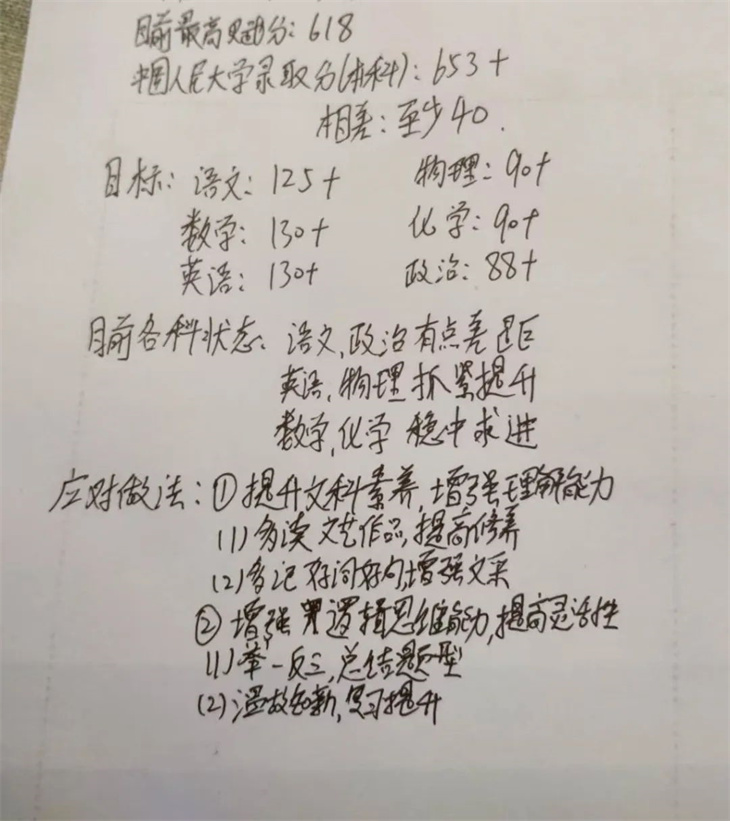 目前最高赋分：618
中国人民大学录取分(本科)：653+
相差：至少40.
目标：语文：125+ 物理：90+
数学：130+ 化学：90+
英语：130+ 政治：88+
目前各科状态：语文、政治有点差距
英语、物理抓紧提升
数学、化学稳中求进
应对做法：①提升文科素养，增强理解能力
(1)多读文艺作品，提高修养
(2)多记好词好句，增强文采
②增强逻辑思维能力，提高灵活性
(1)举一反三，总结题型
(2)温故知新，复习提升